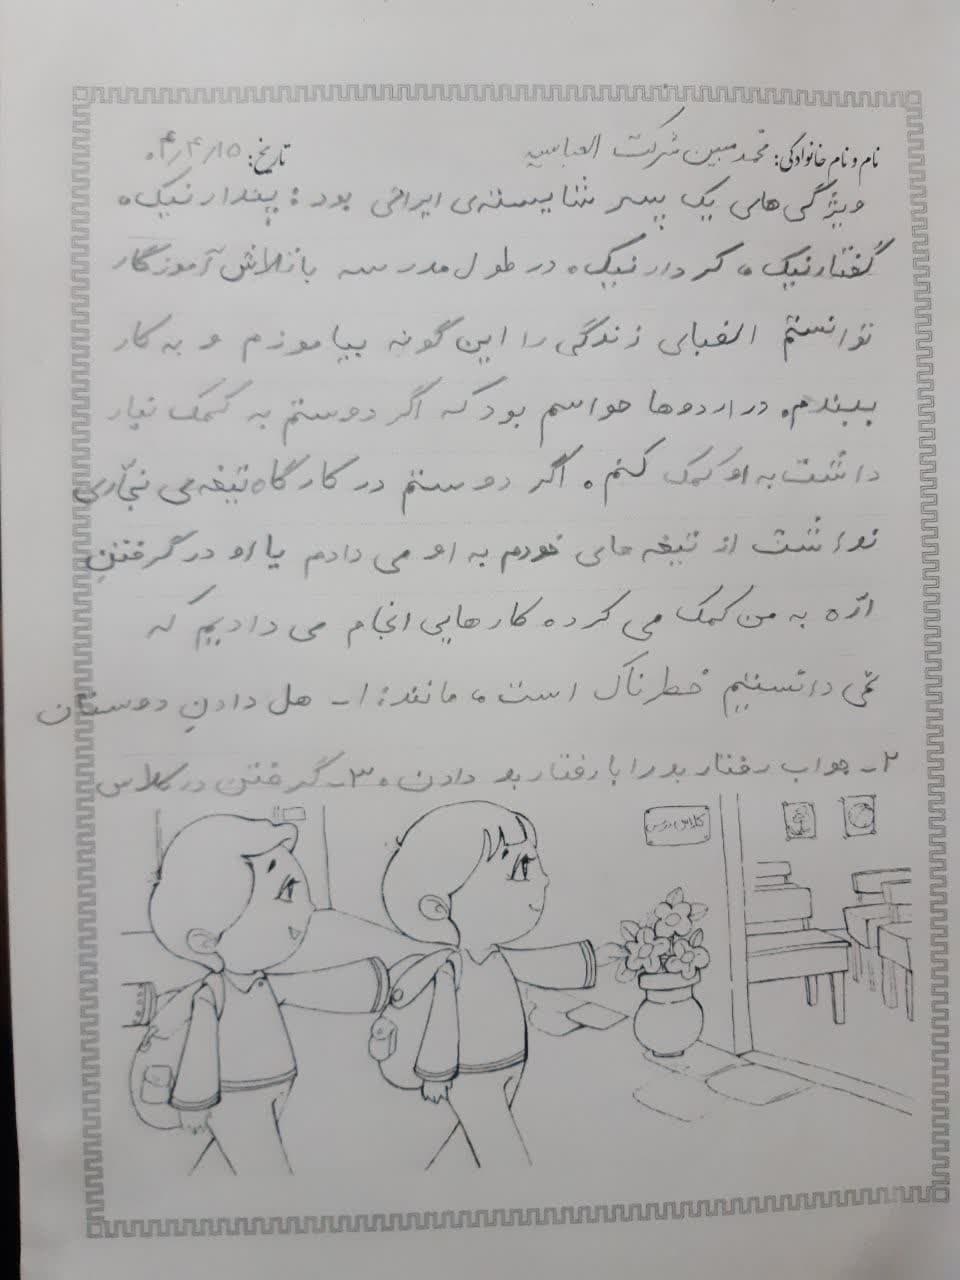 نام و نام خانوادگی: محمد مبین شرکت العباسیه تاریخ: ۰۴٫۴٫۱۵
ویژگی‌های یک پسر شایسته‌ی ایرانی بود: پندار نیک،
گفتار نیک، کردار نیک. در طول مدرسه با تلاش آموزگار
توانستم الفبای زندگی را این گونه بیاموزم و به کار
ببندم. در اردوها حواسم بود که اگر دوستم به کمک نیاز
داشت به او کمک کنم. اگر دوستم در کارگاه تیغه‌ی نجّاری
نداشت از تیغه های خودم به او می دادم یا او در گرفتنِ
ارّه به من کمک می کرد. کارهایی انجام می دادیم که
نمی دانستیم خطرناک است، مانند: ۱ـ هل دادنِ دوستان
۲ـ جواب رفتار بد را با رفتار بد دادن. ۳ـ گرفتن در کلاس
کلاس درس